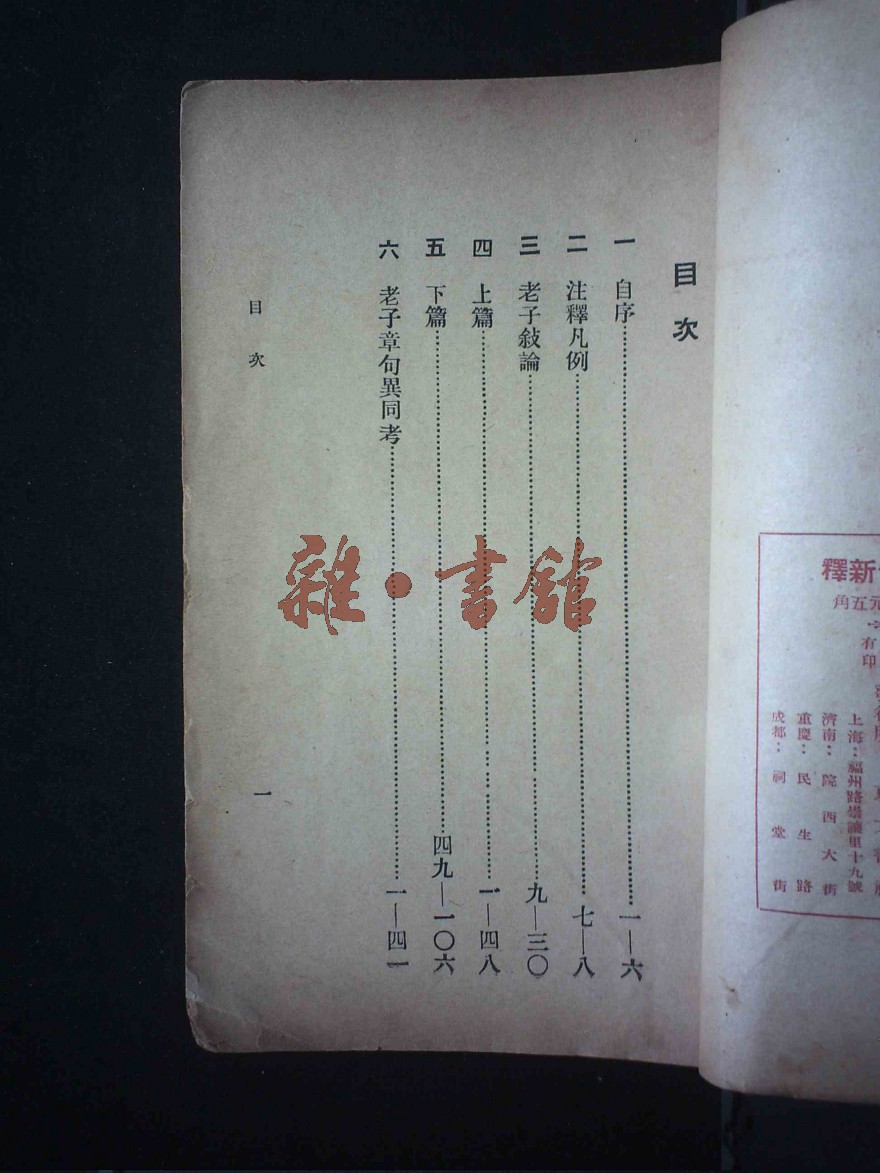 目次
一 自序……一—六
二 注釋凡例……七—八
三 老子敍論……九—三〇
四 上篇……一—四八
五 下篇……四九—一〇六
六 老子章句異同考……一—四一
目次
一
雜·書館
新釋
元五角
有
印
上海：福州路崇讓里十九號
濟南：院西大街
重慶：民生路
成都：祠堂街